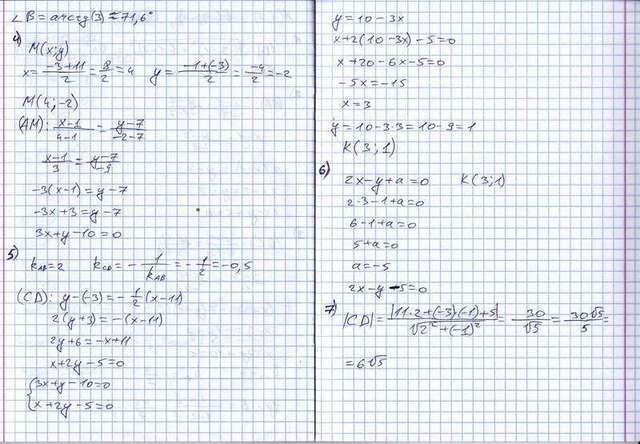 ∠B = arctg(3) ≈ 71,6°
4)
M(x;y)
x = (-3+11)/2 = 8/2 = 4    y = (-1+(-3))/2 = -4/2 = -2
M(4;-2)
(AM): (x-1)/(4-1) = (y-7)/(-2-7)
(x-1)/3 = (y-7)/(-9)
-3(x-1) = y-7
-3x+3 = y-7
3x+y-10=0
5)
k_AB = 2    k_CD = -1/k_AB = -1/2 = -0,5
(CD): y-(-3) = -1/2 (x-11)
2(y+3) = -(x-11)
2y+6 = -x+11
x+2y-5=0
{3x+y-10=0
{x+2y-5=0
y=10-3x
x+2(10-3x)-5=0
x+20-6x-5=0
-5x=-15
x=3
y=10-3·3=10-9=1
K(3;1)
6)
2x-y+a=0    K(3;1)
2·3-1+a=0
6-1+a=0
5+a=0
a=-5
2x-y-5=0
7) |CD| = |11·2+(-3)·(-1)+5|/√(2²+(-1)²) = 30/√5 = 30√5/5 =
=6√5